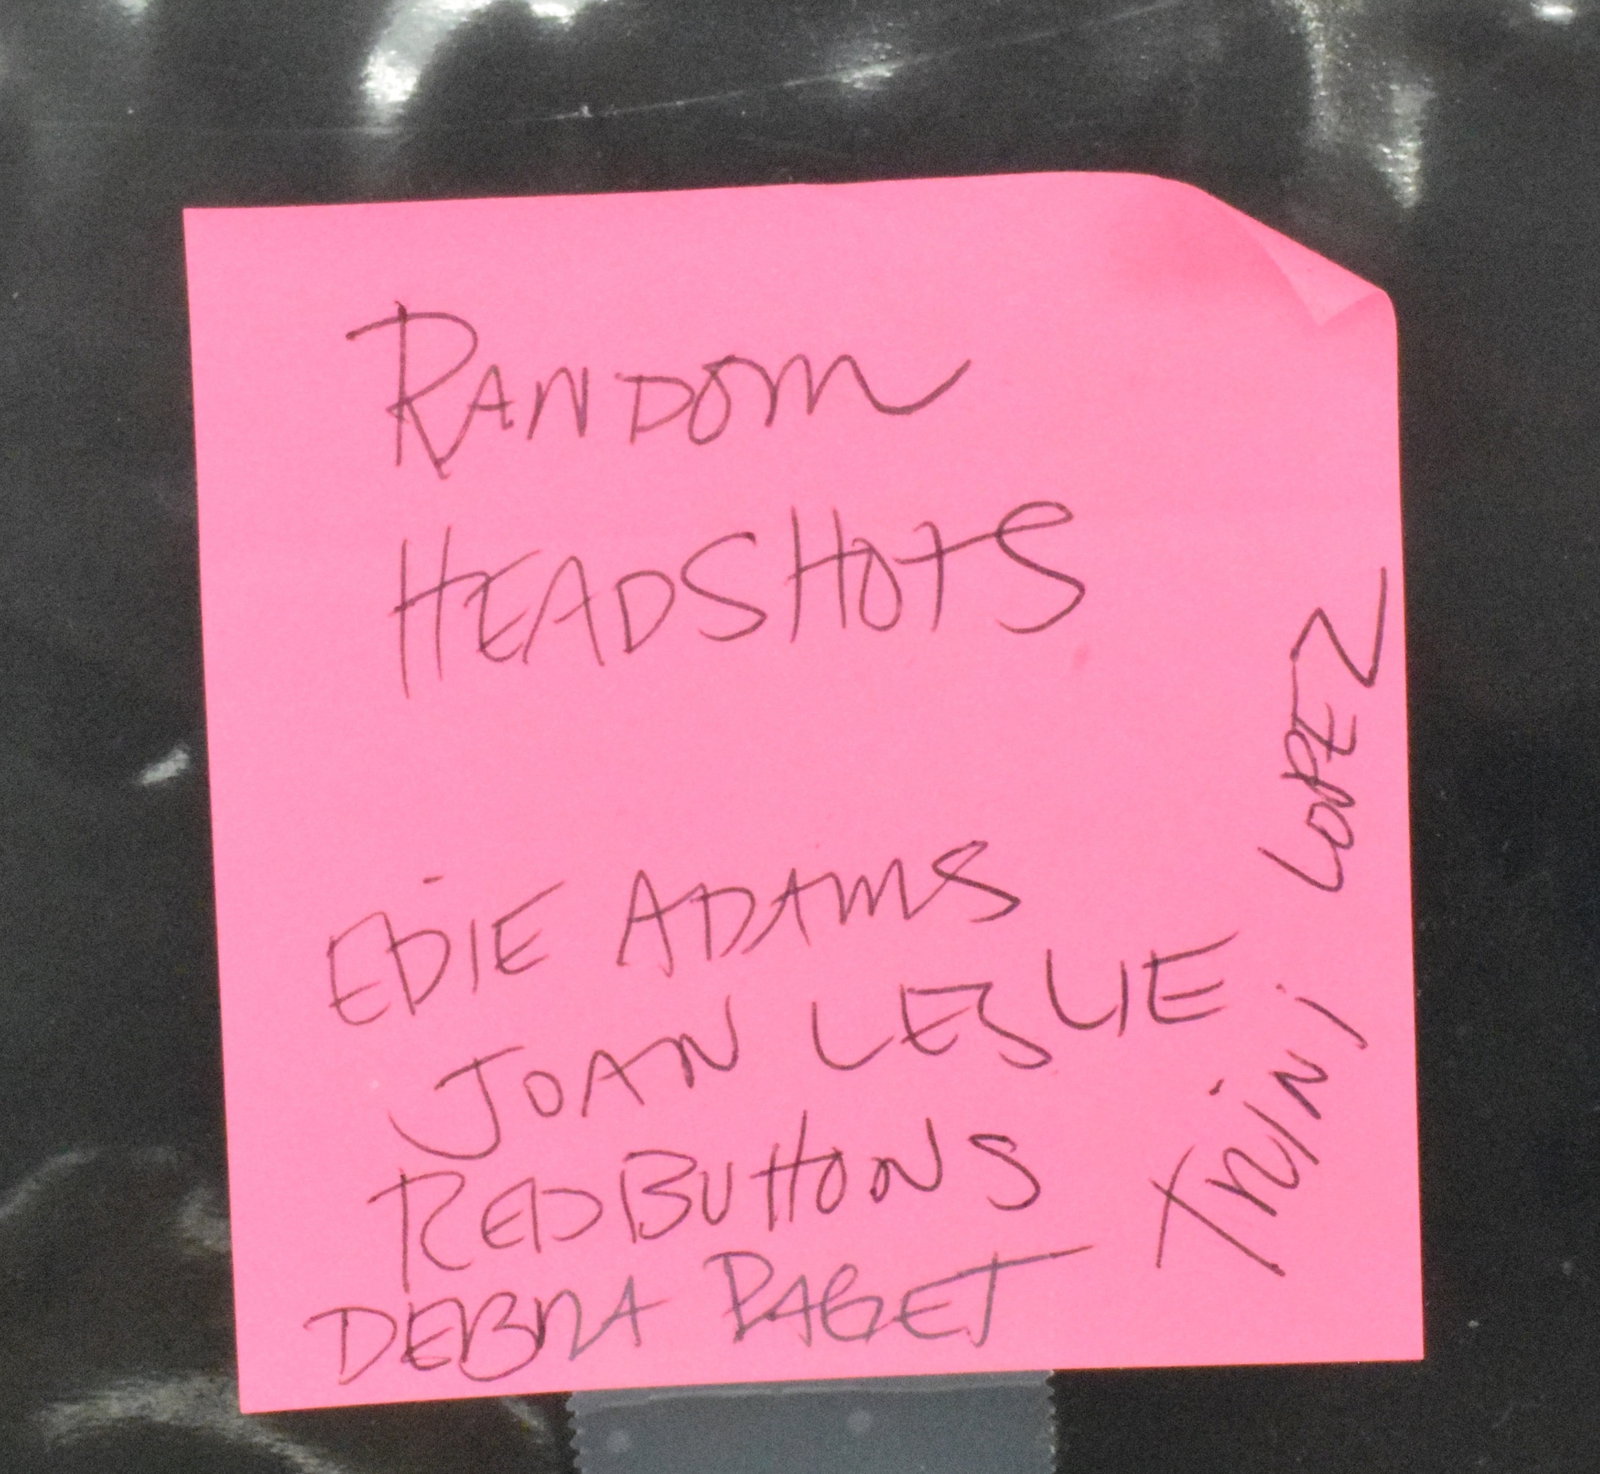 RANDOM
HEADSHOTS
EDIE ADAMS
JOAN LESLIE
RED BUTTONS
DEBRA PAGET
TRINI LOPEZ